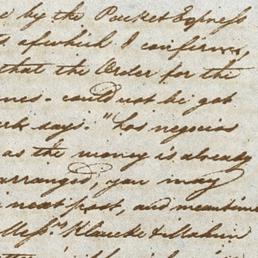 e by the Pocket Express
of which I confirm,
that the Order for the
ines - could not be got
ork says. "Los negocios
as the money is already
arranged, you may
next post, and meantime
Messrs Klaucke &